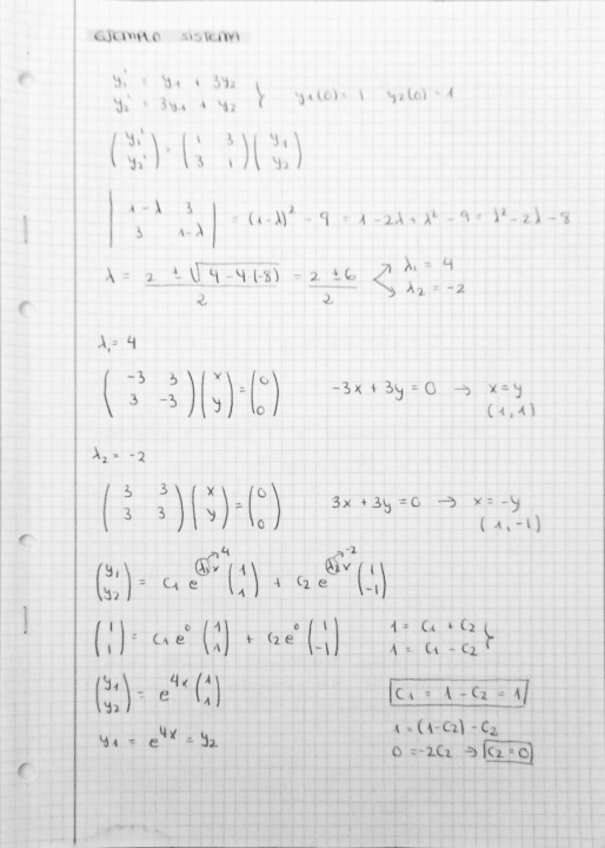 EJEMPLO SISTEMA
y₁' = y₁ + 3y₂
y₂' = 3y₁ + y₂ } y₁(0) = 1 y₂(0) = 1
(y₁' y₂') = (1 3 3 1) (y₁ y₂)
|1-λ 3 3 1-λ| = (1-λ)² - 9 = 1 - 2λ + λ² - 9 = λ² - 2λ - 8
λ = 2 ± √4 - 4(-8) / 2 = 2 ± 6 / 2 λ₁ = 4 λ₂ = -2
λ₁ = 4
(-3 3 3 -3) (x y) = (0 0) -3x + 3y = 0 → x = y
(1, 1)
λ₂ = -2
(3 3 3 3) (x y) = (0 0) 3x + 3y = 0 → x = -y
(1, -1)
(y₁ y₂) = C₁ e^λ₁x → 4 (1 1) + C₂ e^λ₂x → -2 (1 -1)
(1 1) = C₁ e⁰ (1 1) + C₂ e⁰ (1 -1) 1 = C₁ + C₂ 1 = C₁ - C₂ }
(y₁ y₂) = e^4x (1 1) C₁ = 1 - C₂ = 1
1 = (1 - C₂) - C₂
y₁ = e^4x = y₂ 0 = -2C₂ ⇒ C₂ = 0